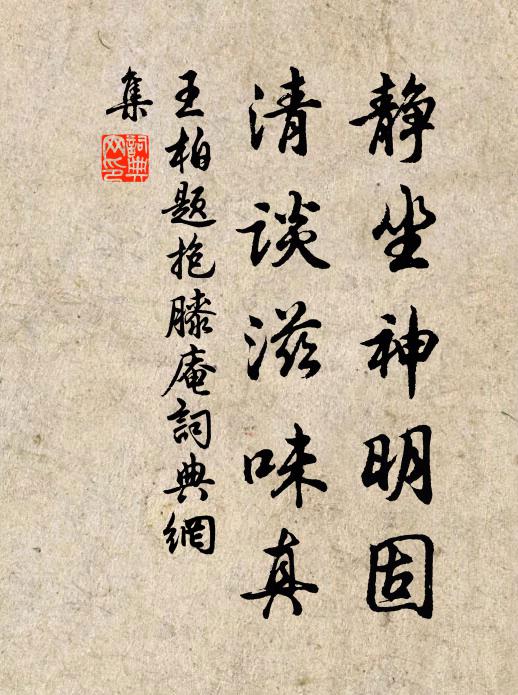 静坐神明固
清談滋味真
王柏题抱膝庵詞典網
集
詞典
网印